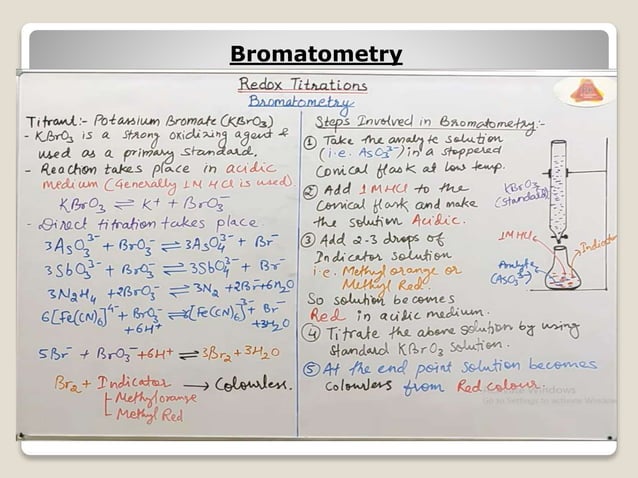 Bromatometry
Redox Titrations
Bromatometry
Titrant:- Potassium Bromate (KBrO3)
- KBrO3 is a strong oxidizing agent &
used as a primary standard.
- Reaction takes place in acidic
medium (Generally 1M HCl is used)
KBrO3 ⇌ K+ + BrO3-
- Direct titration takes place
3AsO3^3- + BrO3- ⇌ 3AsO4^3- + Br-
3SbO3^3- + BrO3- ⇌ 3SbO4^3- + Br-
3N2H4 + 2BrO3- ⇌ 3N2 + 2Br- + 6H2O
6[Fe(CN)6]^4- + BrO3- ⇌ [Fe(CN)6]^3- + Br-
+6H+ +3H2O
5Br- + BrO3- + 6H+ ⇌ 3Br2 + 3H2O
Br2 + Indicator → Colourless.
Methyl orange
Methyl Red
Steps Involved in Bromatometry:-
① Take the analyte solution
(i.e. AsO3^3-) in a stoppered
Conical flask at low temp.
② Add 1M HCl to the
Conical flask and make
the solution Acidic.
③ Add 2-3 drops of
Indicator solution
i.e. Methyl orange or
Methyl Red.
So solution becomes
Red in acidic medium.
④ Titrate the above solution by using
standard KBrO3 Solution.
⑤ At the end point solution becomes
colourless from Red colour.
KBrO3
(standard)
1M HCl
Indicator
Analyte
(AsO3^3-)
Windows
Go to Settings to activate Windows